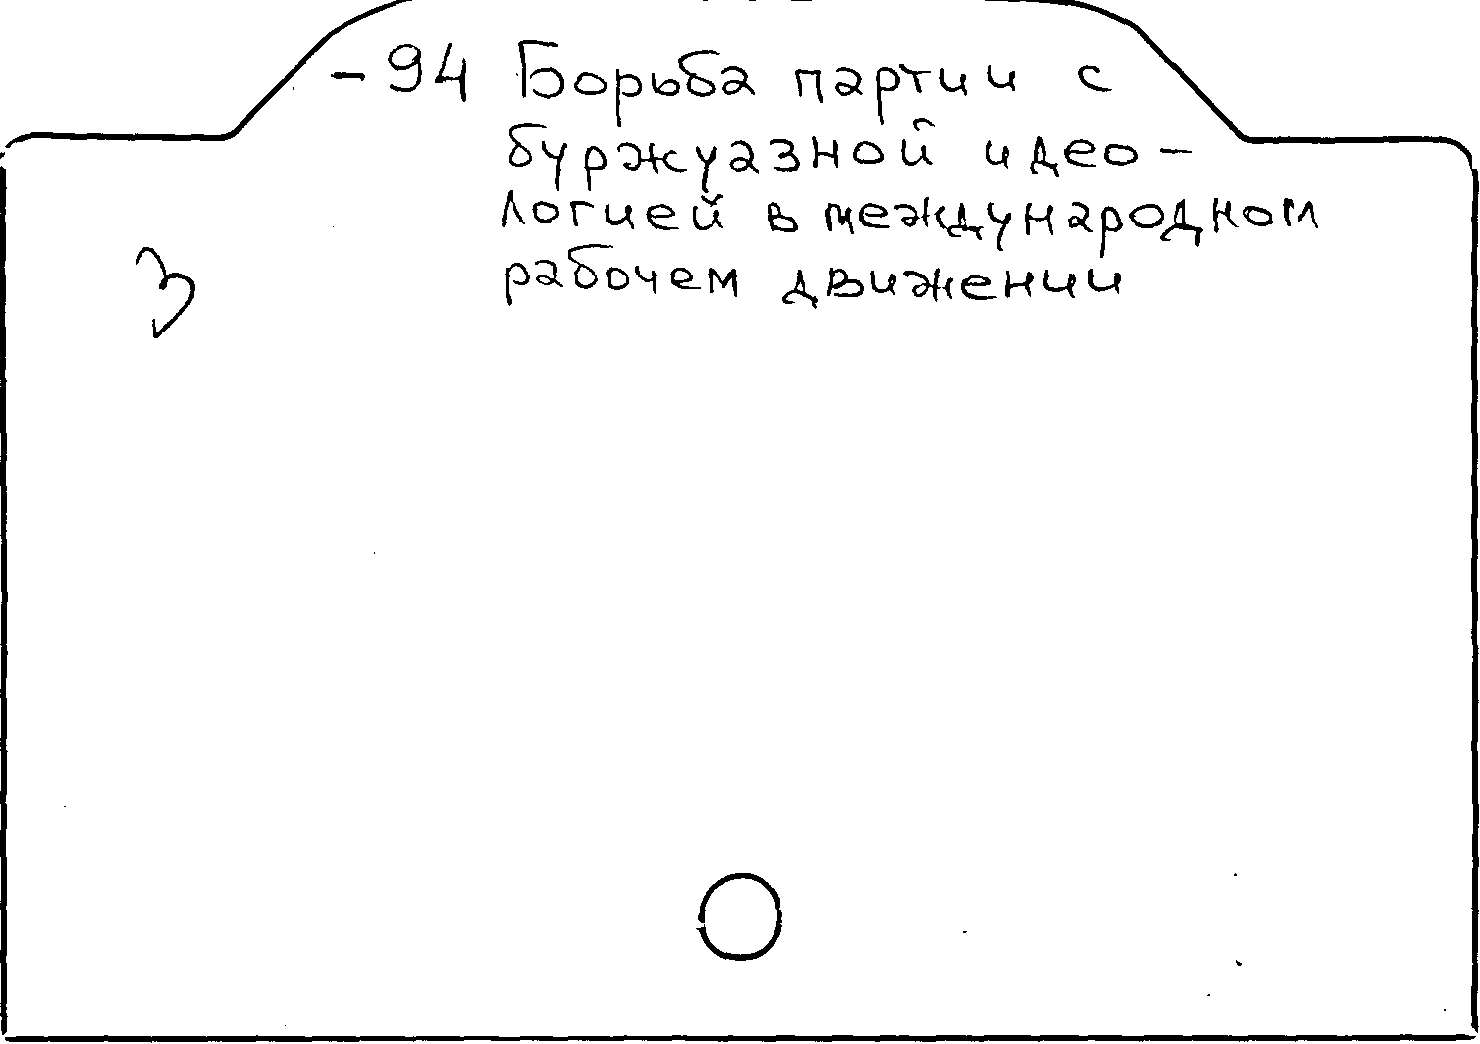 -94 Борьба партии с
буржуазной идео-
логией в международном
рабочем движении
3